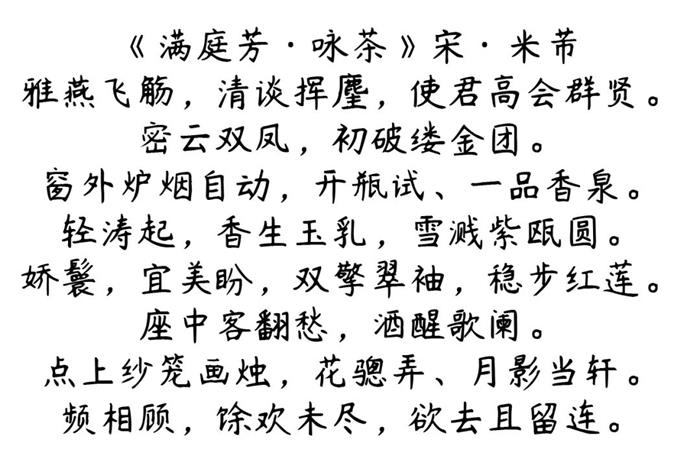 《满庭芳·咏茶》宋·米芾
雅燕飞觞，清谈挥麈，使君高会群贤。
密云双凤，初破缕金团。
窗外炉烟自动，开瓶试、一品香泉。
轻涛起，香生玉乳，雪溅紫瓯圆。
娇鬟，宜美盼，双擎翠袖，稳步红莲。
座中客翻愁，酒醒歌阑。
点上纱笼画烛，花骢弄、月影当轩。
频相顾，馀欢未尽，欲去且留连。